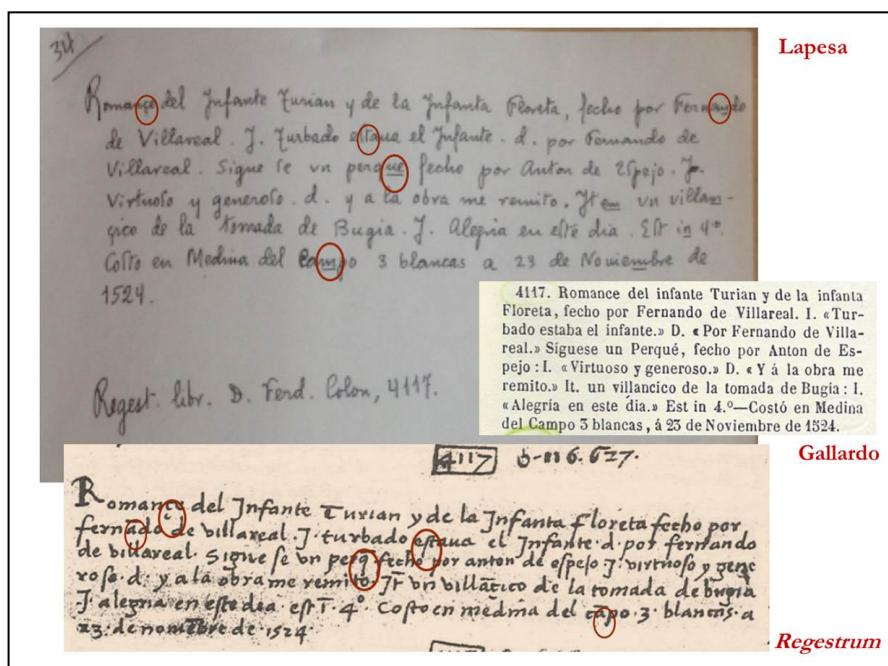 Lapesa
34
Romançe del Jnfante Turian y de la Jnfanta Floreta, fecho por Fernando
de Villareal. J. Turbado estaua el Jnfante. d. por Fernando de
Villareal. Sigue se vn perque fecho por Anton de Espejo. J.
Virtuoso y generoso. d. y a la obra me remito. Jtem vn villan-
çico de la tomada de Bugia. J. Alegria en este dia. Est in 4º.
Costo en Medina del Campo 3 blancas a 23 de Nouiembre de
1524.
Regest. libr. D. Ferd. Colon, 4117.
4117. Romance del infante Turian y de la infanta
Floreta, fecho por Fernando de Villareal. I. «Tur-
bado estaba el infante.» D. «Por Fernando de Villa-
real.» Síguese un Perqué, fecho por Anton de Es-
pejo: I. «Virtuoso y generoso.» D. «Y á la obra me
remito.» It. un villancico de la tomada de Bugía: I.
«Alegría en este dia.» Est in 4.º—Costó en Medina
del Campo 3 blancas, á 23 de Noviembre de 1524.
Gallardo
4117
Romançe del Jnfante Turian y de la Jnfanta Floreta fecho por
fernãdo de villareal. J. turbado estaua el Jnfante. d. por fernando
de villareal. Sigue se vn perq̃ fecho por anton de espejo J. virtuoso y gene
roso. d. y a la obra me remito. Jt̃ vn villãcico de la tomada de bugia
J. alegria en este dia. est ĩ 4º. Costo en medina del cãpo .3. blancas. a
23. de nouiẽbre de .1524.
Regestrum